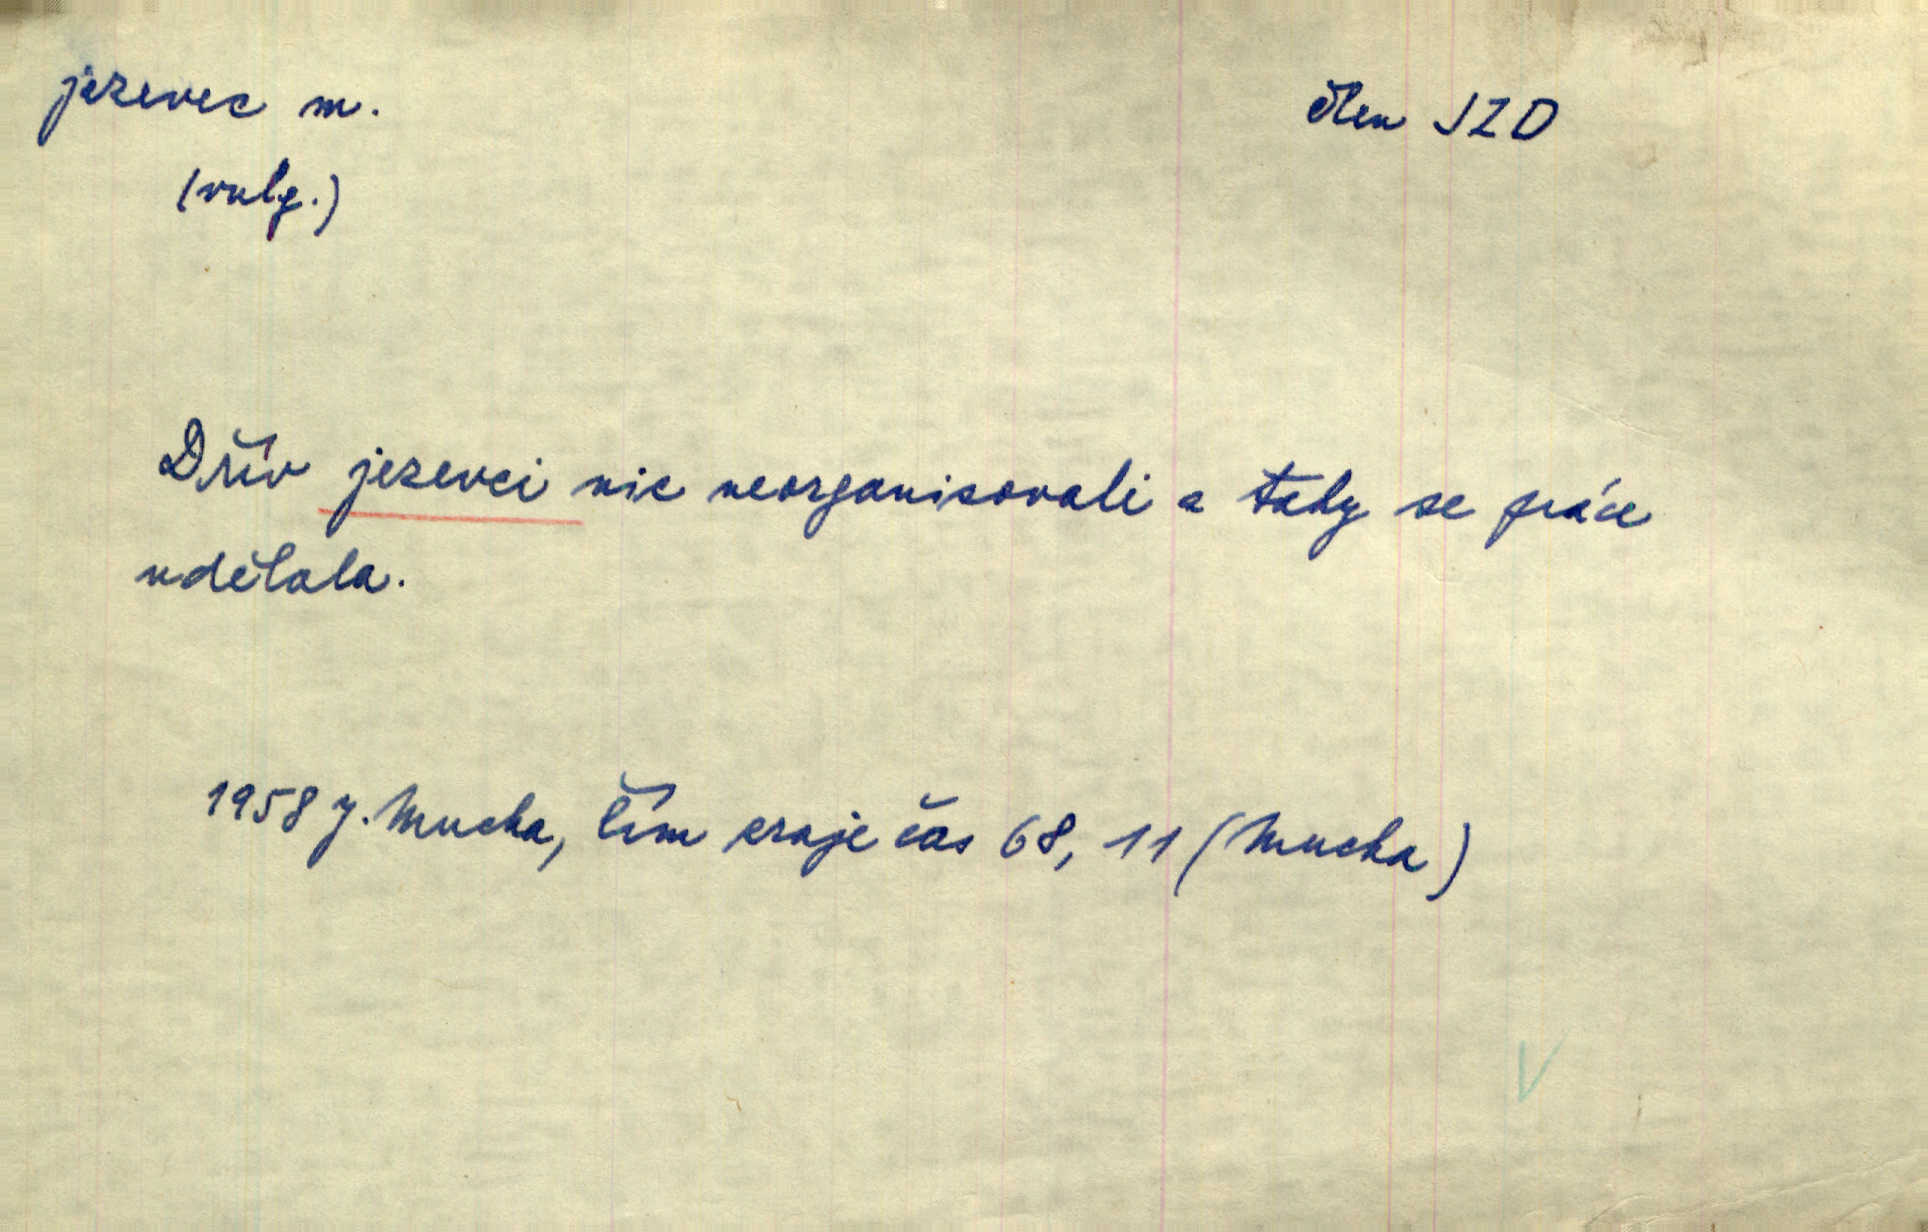 jezevec m.
člen JZD
(vulg.)
Dřív jezevci nic neorganisovali a taky se práce
udělala.
1958 J. Mucha, Čím zraje čas 68, 11 (Mucha)
V